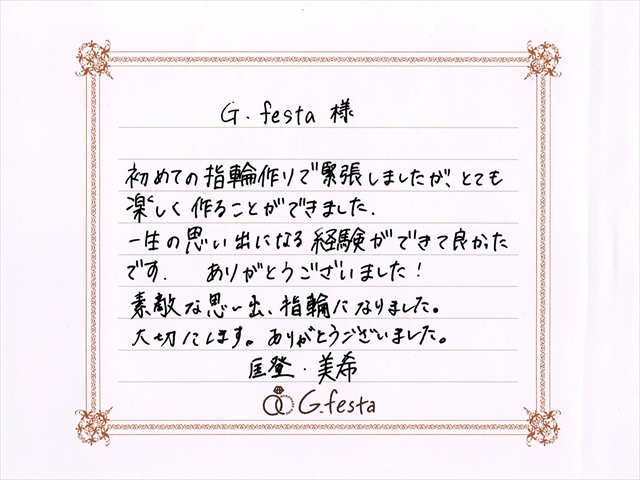 G.festa 様
初めての指輪作りで緊張しましたが、とても
楽しく作ることができました.
一生の思い出になる経験ができて良かった
です. ありがとうございました!
素敵な思い出、指輪になりました。
大切にします。ありがとうございました。
匡登・美希
G.festa